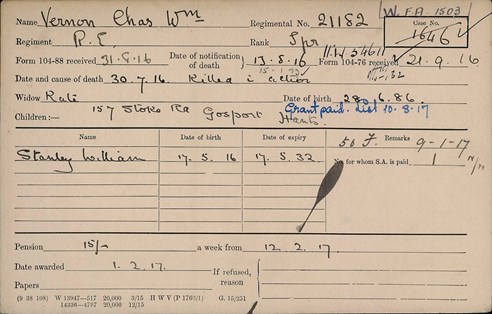 W.F.A. 1503
Name Vernon Chas Wm Regimental No. 21182 Case No.
Regiment R.E. Rank Spr 1646
Form 104-88 received 31.8.16 Date of notification of death 13.8.16 Form 104-76 received 21.9.16
Date and cause of death 30.7.16. Killed i action
Widow Kate Date of birth 28.6.86.
157 Stoke Rd Gosport Hants. Grant paid. List 10.8.17
Children:—
Name Date of birth Date of expiry Remarks 9-1-17
Stanley William 17.5.16 17.5.32 No. for whom S.A. is paid 1
Pension 15/- a week from 12.2.17.
Date awarded 1.2.17. If refused, reason
Papers
(9 38 108) W 13947—517 20,000 3/15 H W V (P 1760/1) G. 15/251
14336—4797 20,000 12/15